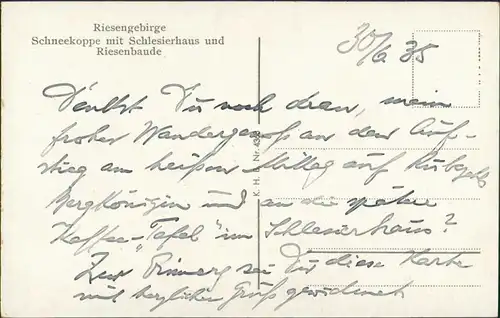 Riesengebirge
Schneekoppe mit Schlesierhaus und
Riesenbaude
30/6 35
Denkst Du noch dran, mein
froher Wandergenoß an den Auf-
stieg am heißen Mittag auf Rübezahls
Bergkönigin und an die spätere
Kaffee-"Tafel" im Schlesierhaus?
Zur Erinnerg sei Dir diese Karte
mit herzlichem Gruß gewidmet
K. H. Nr. 43